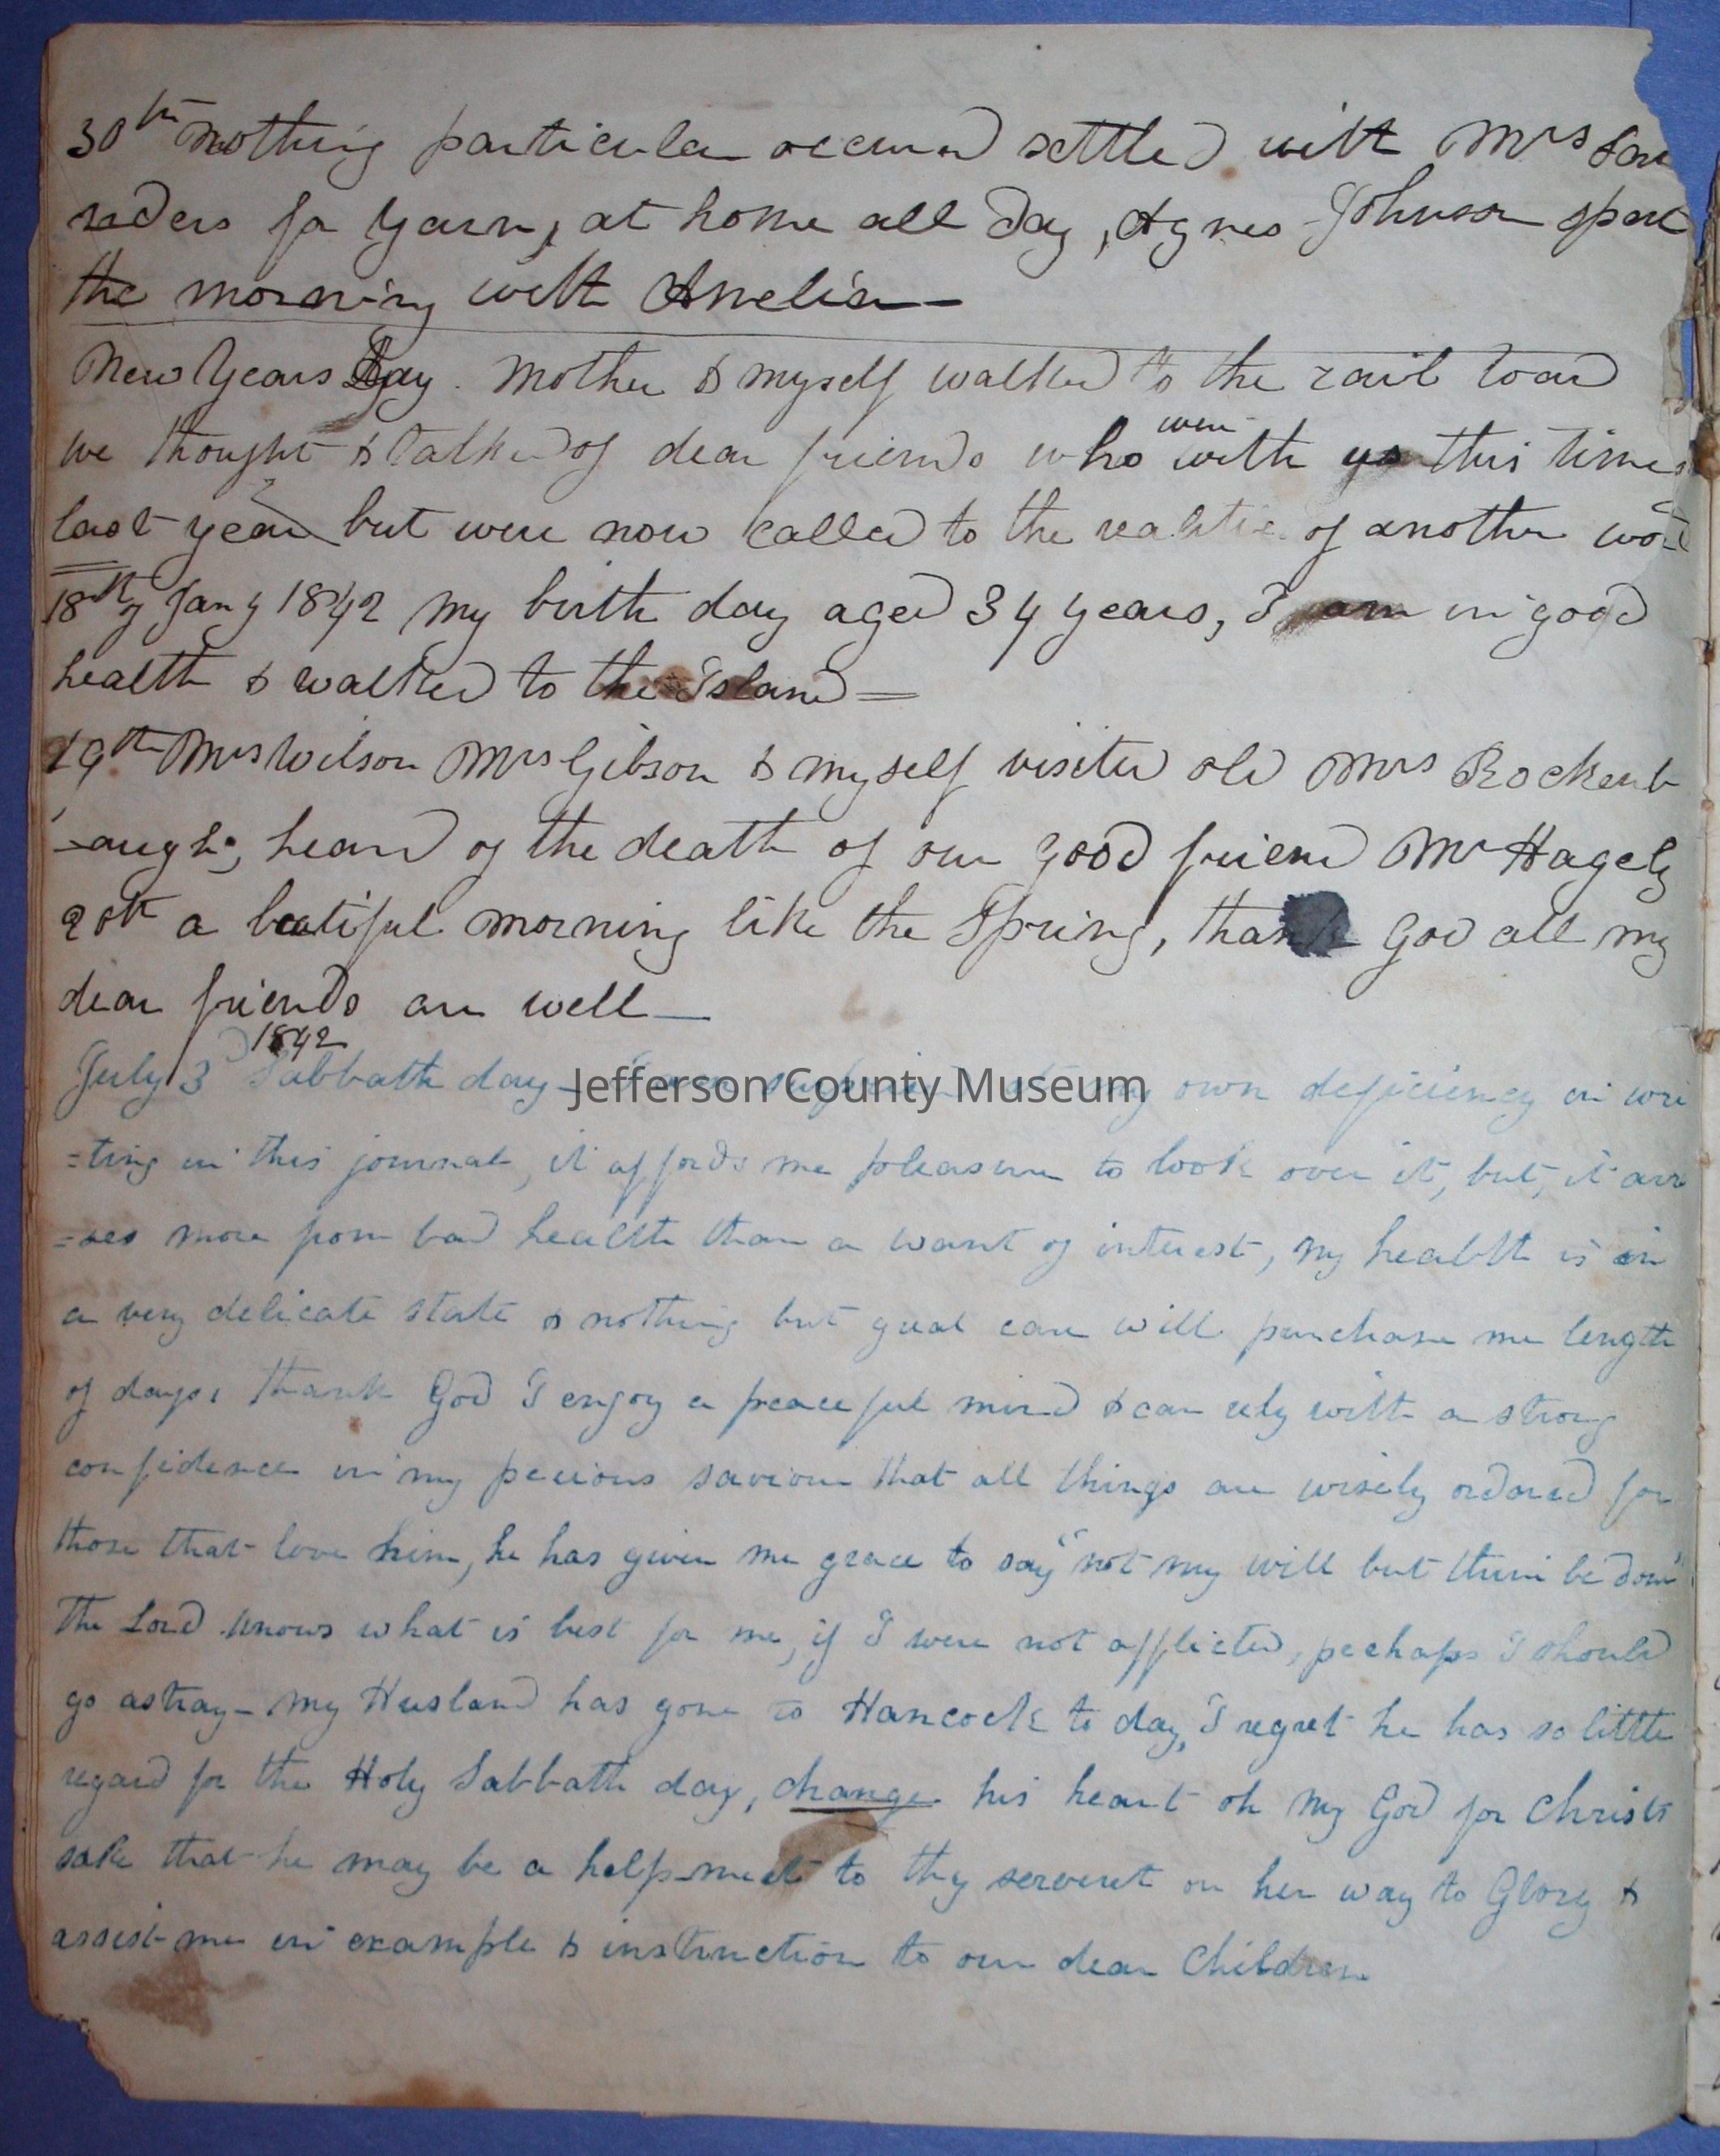 30th nothing particular occured settled with Mrs Sau
nders for Yarn, at home all day, Agnes Johnson spent
the morning with Amelia—
New Years Day. Mother & myself walked to the rail road
we thought & talked of dear friends who were with us this time
last year but were now called to the realities of another world
18th of Jany 1842 My birth day aged 34 years, I am in good
health & walked to the Island =
19th Mrs Wilson Mrs Gibson & myself visited old Mrs Rockenb
-augh, heard of the death of our good friend Mr Hagely
20th a beatiful morning like the Spring, thank God all my
dear friends are well—
1842
July 3d Sabbath day— I am surprised at my own deficiency in wri
=ting in this journal, it affords me pleasure to look over it, but, it ari
=ses more from bad health than a want of interest, my health is in
a very delicate state & nothing but great care will purchase me length
of days, thank God I enjoy a peaceful mind & can rely with a strong
confidence in my precious saviour that all things are wisely ordored for
those that love him, he has given me grace to say "not my will but thine be done"
The Lord knows what is best for me, if I were not afflicted, perhaps I should
go astray— my Husband has gone to Hancock to day, I regret he has so little
regard for the Holy Sabbath day, change his heart oh my God for Christs
sake that he may be a help-meet to thy servent on her way to Glory &
assist me in example & instruction to our dear Children
Jefferson County Museum